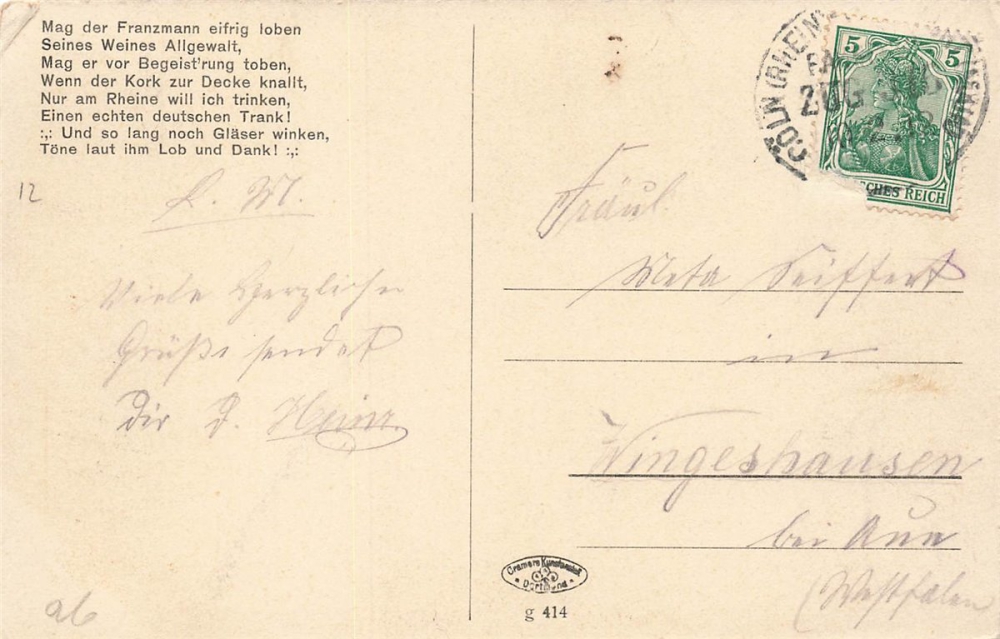 Mag der Franzmann eifrig loben
Seines Weines Allgewalt,
Mag er vor Begeist'rung toben,
Wenn der Kork zur Decke knallt,
Nur am Rheine will ich trinken,
Einen echten deutschen Trank!
:,: Und so lang noch Gläser winken,
Töne laut ihm Lob und Dank! :,:
12
L. M.
Viele Herzliche
Grüße sendet
Dir D. Heinr.
26
CÖLN (RHEIN)
ZUG
5 5
SCHES REICH
Fräul.
Meta Seiffert
in
Wingeshausen
bei Aue
(Westfalen
Cramers Kunstanstalt
Dortmund
g 414